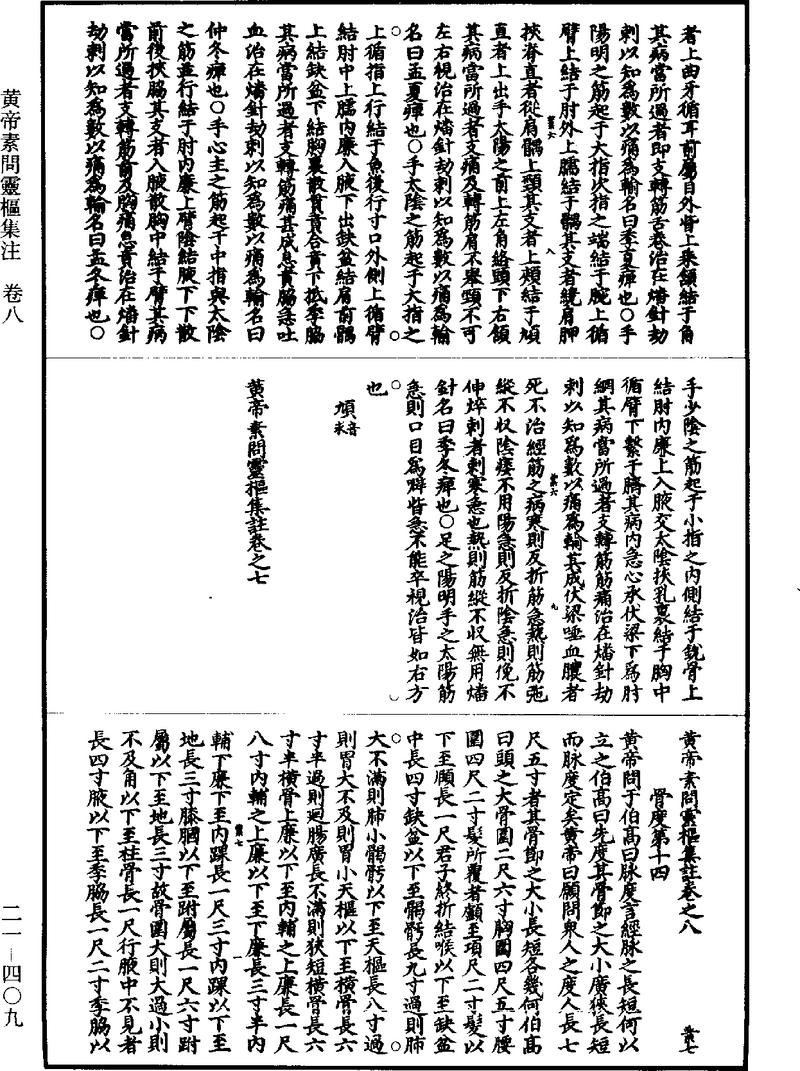 黄帝素問靈樞集注 卷八
二一—四〇九
者上曲牙循耳前屬目外眥上乘頷結于角
其病當所過者即支轉筋舌卷治在燔針劫
刺以知爲數以痛爲輸名曰季夏痺也〇手
陽明之筋起于大指次指之端結于腕上循
臂上結于肘外上臑結于髃其支者繞肩胛
業六 八
挾脊直者從肩髃上頸其支者上頰結于頄
直者上出手太陽之前上左角絡頭下右頷
其病當所過者支痛及轉筋肩不舉頸不可
左右視治在燔針劫刺以知爲數以痛爲輸
名曰孟夏痺也〇手太陰之筋起于大指之
上循指上行結于魚後行寸口外側上循臂
結肘中上臑內廉入腋下出缺盆結肩前髃
上結缺盆下結胸裏散貫賁合賁下抵季脇
其病當所過者支轉筋痛甚成息賁脇急吐
血治在燔針劫刺以知爲數以痛爲輸名曰
仲冬痺也〇手心主之筋起于中指與太陰
之筋並行結于肘內廉上臂陰結腋下下散
前後挾脇其支者入腋散胸中結于臂其病
當所過者支轉筋前及胸痛息賁治在燔針
劫刺以知爲數以痛爲輸名曰孟冬痺也〇
手少陰之筋起于小指之內側結于銳骨上
結肘內廉上入腋交太陰挾乳裏結于胸中
循臂下繫于臍其病內急心承伏梁下爲肘
網其病當所過者支轉筋筋痛治在燔針劫
刺以知爲數以痛爲輸其成伏梁唾血膿者
業六 九
死不治經筋之病寒則反折筋急熱則筋弛
縱不収陰痿不用陽急則反折陰急則俛不
伸焠刺者刺寒急也熱則筋縱不収無用燔
針名曰季冬痺也〇足之陽明手之太陽筋
急則口目爲噼眥急不能卒視治皆如右方
也
頄 音求
黄帝素問靈樞集註卷之七
黄帝素問靈樞集註卷之八 業七
骨度第十四
黄帝問于伯髙曰脉度言經脉之長短何以
立之伯髙曰先度其骨節之大小廣狹長短
而脉度定矣黄帝曰願問衆人之度人長七
尺五寸者其骨節之大小長短各幾何伯髙
曰頭之大骨圍二尺六寸胸圍四尺五寸腰
圍四尺二寸髮所覆者顱至項尺二寸髮以
下至頤長一尺君子終折結喉以下至缺盆
中長四寸缺盆以下至𩩲骬長九寸過則肺
大不滿則肺小𩩲骬以下至天樞長八寸過
則胃大不及則胃小天樞以下至橫骨長六
寸半過則廻腸廣長不滿則狹短橫骨長六
寸半橫骨上廉以下至內輔之上廉長一尺
八寸內輔之上廉以下至下廉長三寸半內
業七 一
輔下廉下至內踝長一尺三寸內踝以下至
地長三寸膝膕以下至跗屬長一尺六寸跗
屬以下至地長三寸故骨圍大則大過小則
不及角以下至柱骨長一尺行腋中不見者
長四寸腋以下至季脇長一尺二寸季脇以